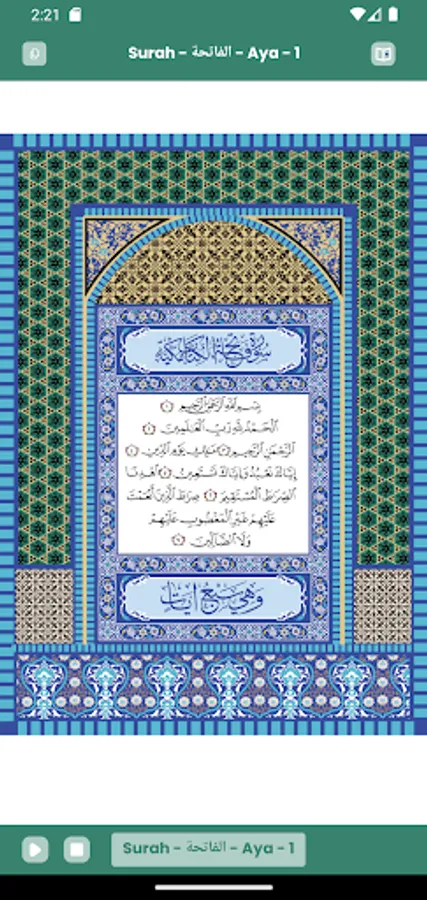 2:21
Surah - الفاتحة - Aya - 1
سُورَةُ فَاتِحَةِ الْكِتَابِ مَكِّيَّة
بِسْمِ اللَّهِ الرَّحْمَٰنِ الرَّحِيمِ
الْحَمْدُ لِلَّهِ رَبِّ الْعَٰلَمِينَ
الرَّحْمَٰنِ الرَّحِيمِ مَٰلِكِ يَوْمِ الدِّينِ
إِيَّاكَ نَعْبُدُ وَإِيَّاكَ نَسْتَعِينُ اهْدِنَا
الصِّرَٰطَ الْمُسْتَقِيمَ صِرَٰطَ الَّذِينَ أَنْعَمْتَ
عَلَيْهِمْ غَيْرِ الْمَغْضُوبِ عَلَيْهِمْ
وَلَا الضَّالِّينَ
وَهِيَ سَبْعُ آيَات
Surah - الفاتحة - Aya - 1